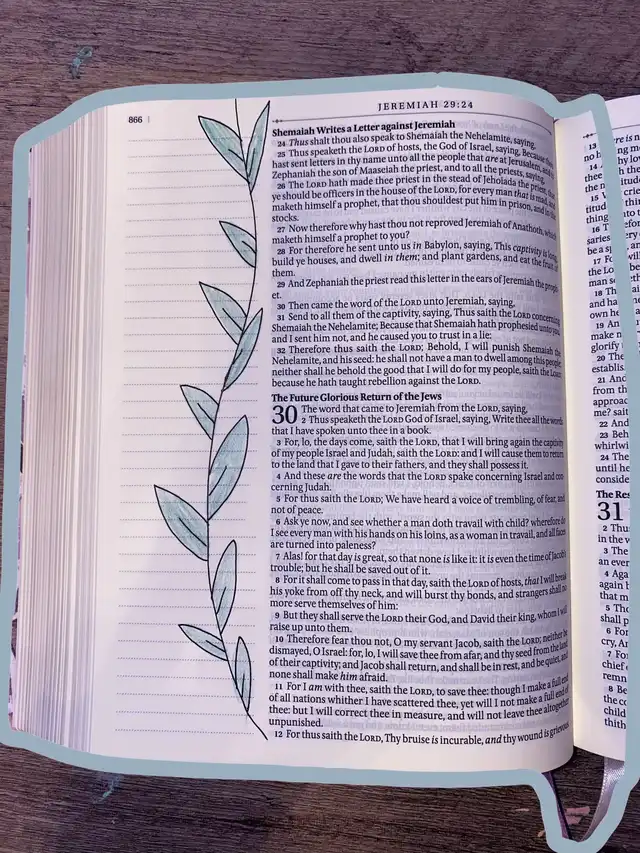 JEREMIAH 29:24
866 |
Shemaiah Writes a Letter against Jeremiah
24 Thus shalt thou also speak to Shemaiah the Nehelamite, saying,
25 Thus speaketh the LORD of hosts, the God of Israel, saying, Because thou
hast sent letters in thy name unto all the people that are at Jerusalem, and to
Zephaniah the son of Maaseiah the priest, and to all the priests, saying,
26 The LORD hath made thee priest in the stead of Jehoiada the priest, that
ye should be officers in the house of the LORD, for every man that is mad, and
maketh himself a prophet, that thou shouldest put him in prison, and in the
stocks.
27 Now therefore why hast thou not reproved Jeremiah of Anathoth, which
maketh himself a prophet to you?
28 For therefore he sent unto us in Babylon, saying, This captivity is long:
build ye houses, and dwell in them; and plant gardens, and eat the fruit of
them.
29 And Zephaniah the priest read this letter in the ears of Jeremiah the proph-
et.
30 Then came the word of the LORD unto Jeremiah, saying,
31 Send to all them of the captivity, saying, Thus saith the LORD concerning
Shemaiah the Nehelamite; Because that Shemaiah hath prophesied unto you,
and I sent him not, and he caused you to trust in a lie:
32 Therefore thus saith the LORD; Behold, I will punish Shemaiah the
Nehelamite, and his seed: he shall not have a man to dwell among this people;
neither shall he behold the good that I will do for my people, saith the LORD;
because he hath taught rebellion against the LORD.
The Future Glorious Return of the Jews
30 The word that came to Jeremiah from the LORD, saying,
2 Thus speaketh the LORD God of Israel, saying, Write thee all the words
that I have spoken unto thee in a book.
3 For, lo, the days come, saith the LORD, that I will bring again the captivity
of my people Israel and Judah, saith the LORD: and I will cause them to return
to the land that I gave to their fathers, and they shall possess it.
4 And these are the words that the LORD spake concerning Israel and con-
cerning Judah.
5 For thus saith the LORD; We have heard a voice of trembling, of fear, and
not of peace.
6 Ask ye now, and see whether a man doth travail with child? wherefore do
I see every man with his hands on his loins, as a woman in travail, and all faces
are turned into paleness?
7 Alas! for that day is great, so that none is like it: it is even the time of Jacob's
trouble; but he shall be saved out of it.
8 For it shall come to pass in that day, saith the LORD of hosts, that I will break
his yoke from off thy neck, and will burst thy bonds, and strangers shall no
more serve themselves of him:
9 But they shall serve the LORD their God, and David their king, whom I will
raise up unto them.
10 Therefore fear thou not, O my servant Jacob, saith the LORD; neither be
dismayed, O Israel: for, lo, I will save thee from afar, and thy seed from the land
of their captivity; and Jacob shall return, and shall be in rest, and be quiet, and
none shall make him afraid.
11 For I am with thee, saith the LORD, to save thee: though I make a full end
of all nations whither I have scattered thee, yet will I not make a full end of
thee: but I will correct thee in measure, and will not leave thee altogether
unpunished.
12 For thus saith the LORD, Thy bruise is incurable, and thy wound is grievous.
13
14
15
16
17
18
19
20 The
21 And
22 And
23
24 The
31
2
3 The
4
5
6 For
7
8